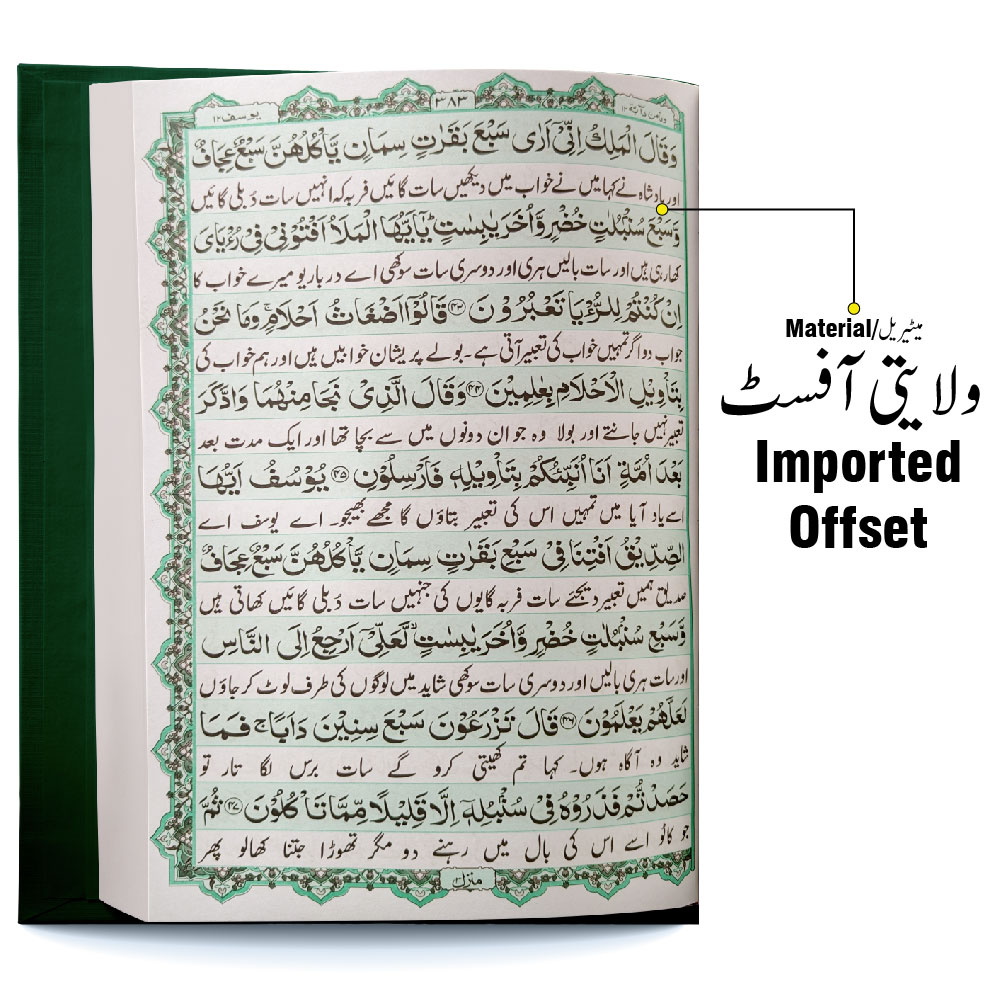 وما من دابة ١٢
٣٨٣
يوسف ١٢
وَقَالَ الْمَلِكُ اِنِّیْٓ اَرٰی سَبْعَ بَقَرٰتٍ سِمَانٍ یَّاْكُلُهُنَّ سَبْعٌ عِجَافٌ
اور بادشاہ نے کہا میں نے خواب میں دیکھیں سات گائیں فربہ کہ انہیں سات دُبلی گائیں
وَّسَبْعَ سُنْۢبُلٰتٍ خُضْرٍ وَّاُخَرَ یٰبِسٰتٍ ؕ یٰۤاَیُّهَا الْمَلَاُ اَفْتُوْنِیْ فِیْ رُءْیَایَ
کھا رہی ہیں اور سات بالیں ہری اور دوسری سات سوکھی اے درباریو میرے خواب کا
اِنْ كُنْتُمْ لِلرُّءْیَا تَعْبُرُوْنَ ﴿۴۳﴾ قَالُوْۤا اَضْغَاثُ اَحْلَامٍ ۚ وَمَا نَحْنُ
جواب دو اگر تمہیں خواب کی تعبیر آتی ہے۔ بولے پریشان خوابیں ہیں اور ہم خواب کی
بِتَاْوِیْلِ الْاَحْلَامِ بِعٰلِمِیْنَ ﴿۴۴﴾ وَقَالَ الَّذِیْ نَجَا مِنْهُمَا وَادَّكَرَ
تعبیر نہیں جانتے اور بولا وہ جو ان دونوں میں سے بچا تھا اور ایک مدت بعد
بَعْدَ اُمَّةٍ اَنَا اُنَبِّئُكُمْ بِتَاْوِیْلِهٖ فَاَرْسِلُوْنِ ﴿۴۵﴾ یُوْسُفُ اَیُّهَا
اسے یاد آیا میں تمہیں اس کی تعبیر بتاؤں گا مجھے بھیجو۔ اے یوسف اے
الصِّدِّیْقُ اَفْتِنَا فِیْ سَبْعِ بَقَرٰتٍ سِمَانٍ یَّاْكُلُهُنَّ سَبْعٌ عِجَافٌ
صدیق ہمیں تعبیر دیجئے سات فربہ گایوں کی جنہیں سات دُبلی گائیں کھاتی ہیں
وَّسَبْعِ سُنْۢبُلٰتٍ خُضْرٍ وَّاُخَرَ یٰبِسٰتٍ ۙ لَّعَلِّیْۤ اَرْجِعُ اِلَی النَّاسِ
اور سات ہری بالیں اور دوسری سات سوکھی شاید میں لوگوں کی طرف لوٹ کر جاؤں
لَعَلَّهُمْ یَعْلَمُوْنَ ﴿۴۶﴾ قَالَ تَزْرَعُوْنَ سَبْعَ سِنِیْنَ دَاَبًا ۚ فَمَا
شاید وہ آگاہ ہوں۔ کہا تم کھیتی کرو گے سات برس لگا تار تو
حَصَدْتُّمْ فَذَرُوْهُ فِیْ سُنْۢبُلِهٖۤ اِلَّا قَلِیْلًا مِّمَّا تَاْكُلُوْنَ ﴿۴۷﴾ ثُمَّ
جو کاٹو اسے اس کی بال میں رہنے دو مگر تھوڑا جتنا کھالو پھر
منزل
Material/میٹیریل
ولایتی آفسٹ
Imported
Offset